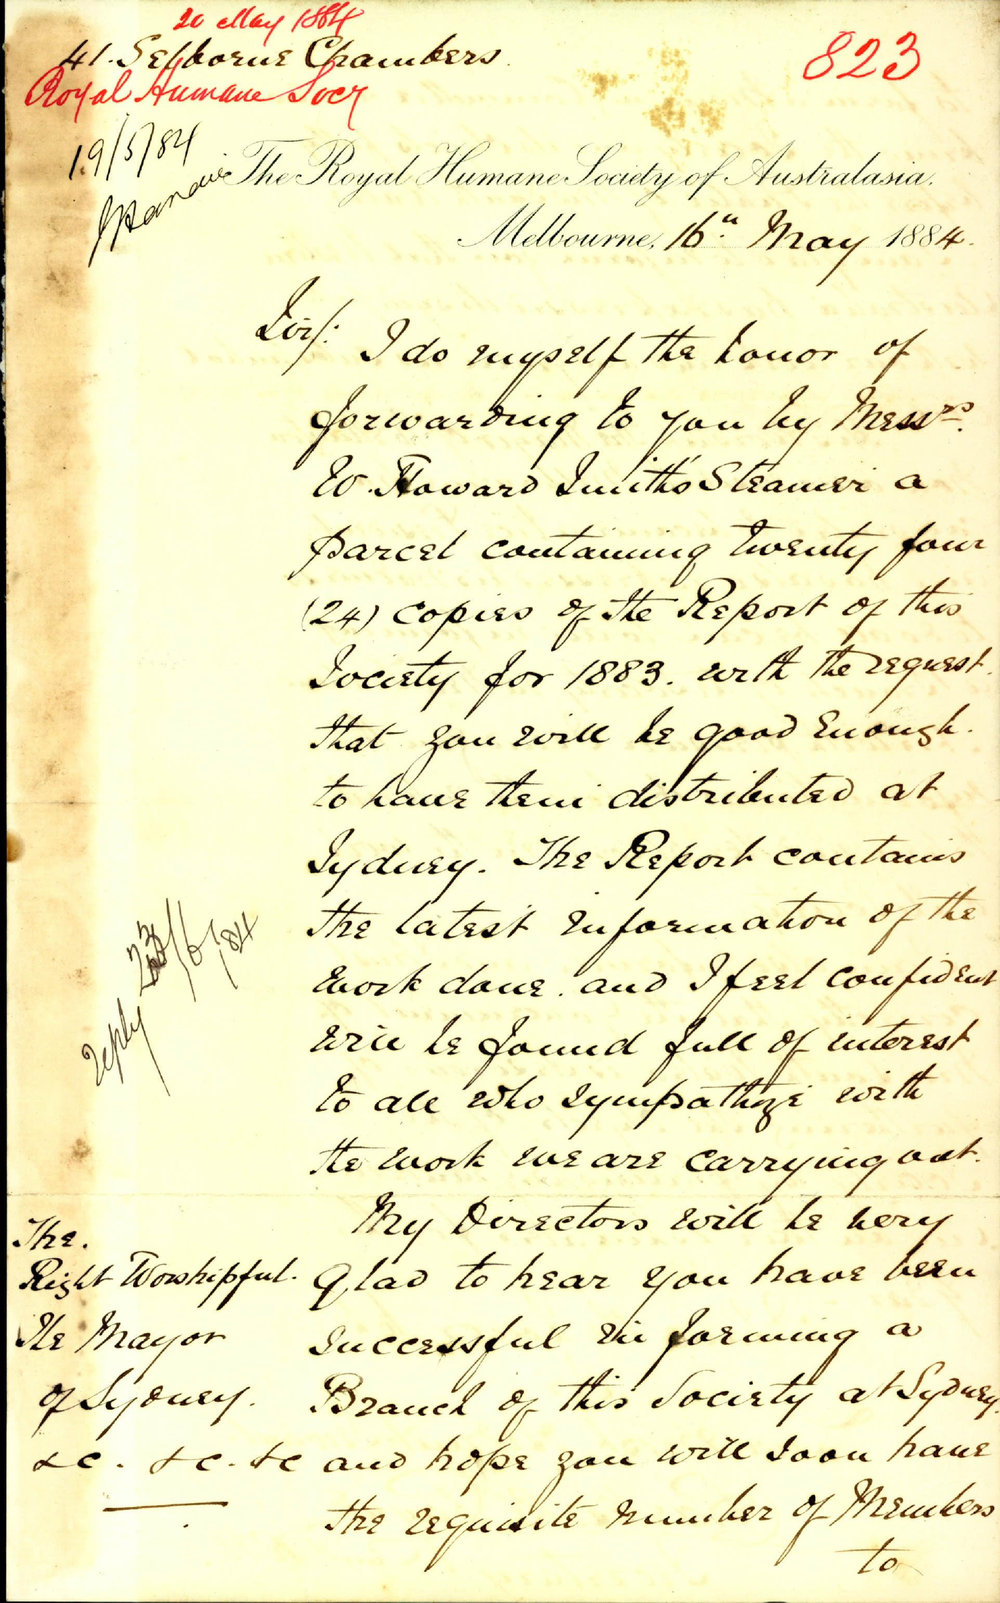 20 May 1884
41. Selborne Chambers.
823
Royal Humane Socy
19/5/84
The Royal Humane Society of Australasia.
Melbourne, 16th May 1884.
Sir/:
I do myself the honor of
forwarding to you by Messrs.
W. Howard Smith's Steamer a
parcel containing twenty four
(24) copies of the Report of this
Society for 1883. with the request
that you will be good enough
to have them distributed at
Sydney. The Report contains
the latest information of the
work done. and I feel confident
will be found full of interest
to all who sympathize with
the work we are carrying out.
reply 23/6/84
My Directors will be very
glad to hear you have been
successful in forming a
Branch of this Society at Sydney.
and hope you will soon have
the requisite number of Members
to
The.
Right Worshipful.
The Mayor
of Sydney.
&c. &c. &c